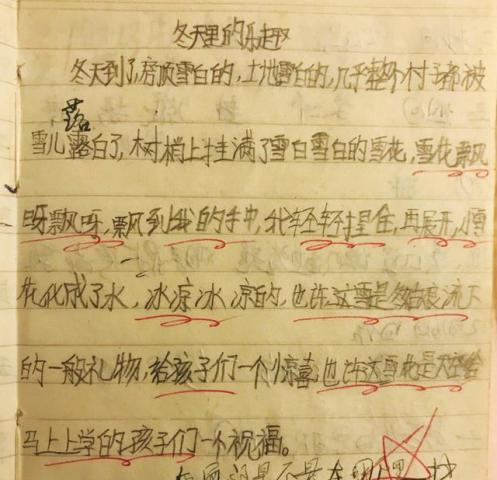 冬天里的乐趣
冬天到了,房顶雪白的,土地雪白的,几乎整个村子都被
落
雪儿露白了,树梢上挂满了雪白雪白的雪花,雪花飘
呀飘呀,飘到我的手中,我轻轻握住,再展开,小雪
花化成了水,冰凉冰凉的,也许这雪是 流下
的一般礼物,给孩子们一个惊喜,也许这雪花是天空给
马上上学的孩子们一个祝福。
是不是